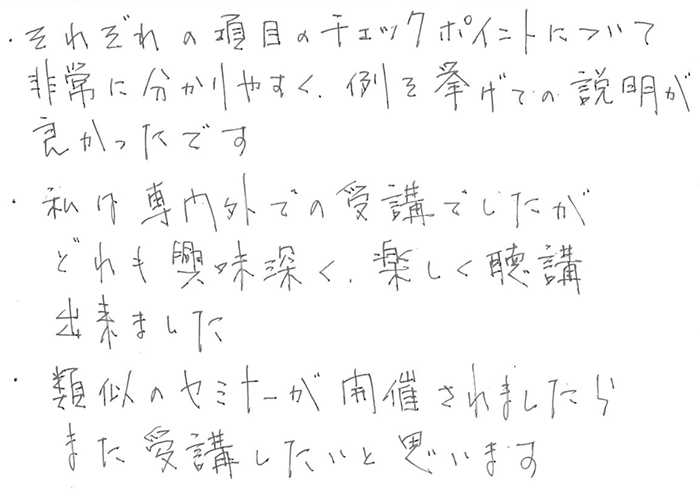 ・それぞれの項目のチェックポイントについて
非常に分かりやすく、例を挙げての説明が
良かったです
・私は専内外での受講でしたが
どれも興味深く、楽しく聴講
出来ました
・類似のセミナーが開催されましたら
また受講したいと思います